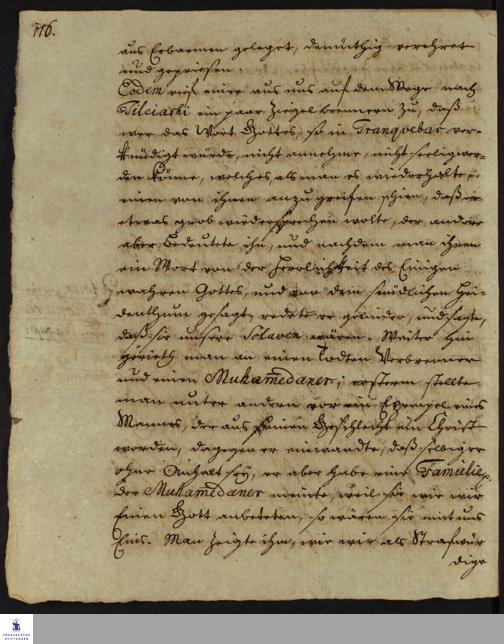 116.
aus Erbarmen geleget, demüthig verehret
und gepriesen
Eodem rief einer aus uns auf dem Wege nach
Tileiarhi ein paar Ziegelbrennern zu, daß
wer das Wort Gottes, so in Tranqvebar ver-
kündigt würde, nicht annehme, nicht seelig wer-
den könne, welches, als man es wiederholte,
einen von ihnen anzugreifen schien, daß er
etwas grob wiedersprechen wolte, der andere
aber bedeutete ihn, und nachdem man ihnen
ein Wort von der Herrlichkeit des Einigen
wahren Gottes, und von dem sündlichen Hei-
denthum gesagt, redete er gelinder, und sagte,
daß sie unsere Sclaven wären. Weiter hin
gerieth man an einen Todten Verbrenner
und einen Muhamedaner; ersterm stellte
man unter andern vor ein Exempel eines
Mannes, der aus seinem Geschlecht ein Christ
worden, dagegen er einwandte, daß selbiger
ohne Anhalt sey, er aber habe eine Familie
der Muhamedaner meinte, weil sie wie wir
Einen Gott anbeteten, so wären sie mit uns
Eins. Man zeigte ihm, wie wir als Strafwür
dige
FRANCKESCHE
STIFTUNGEN